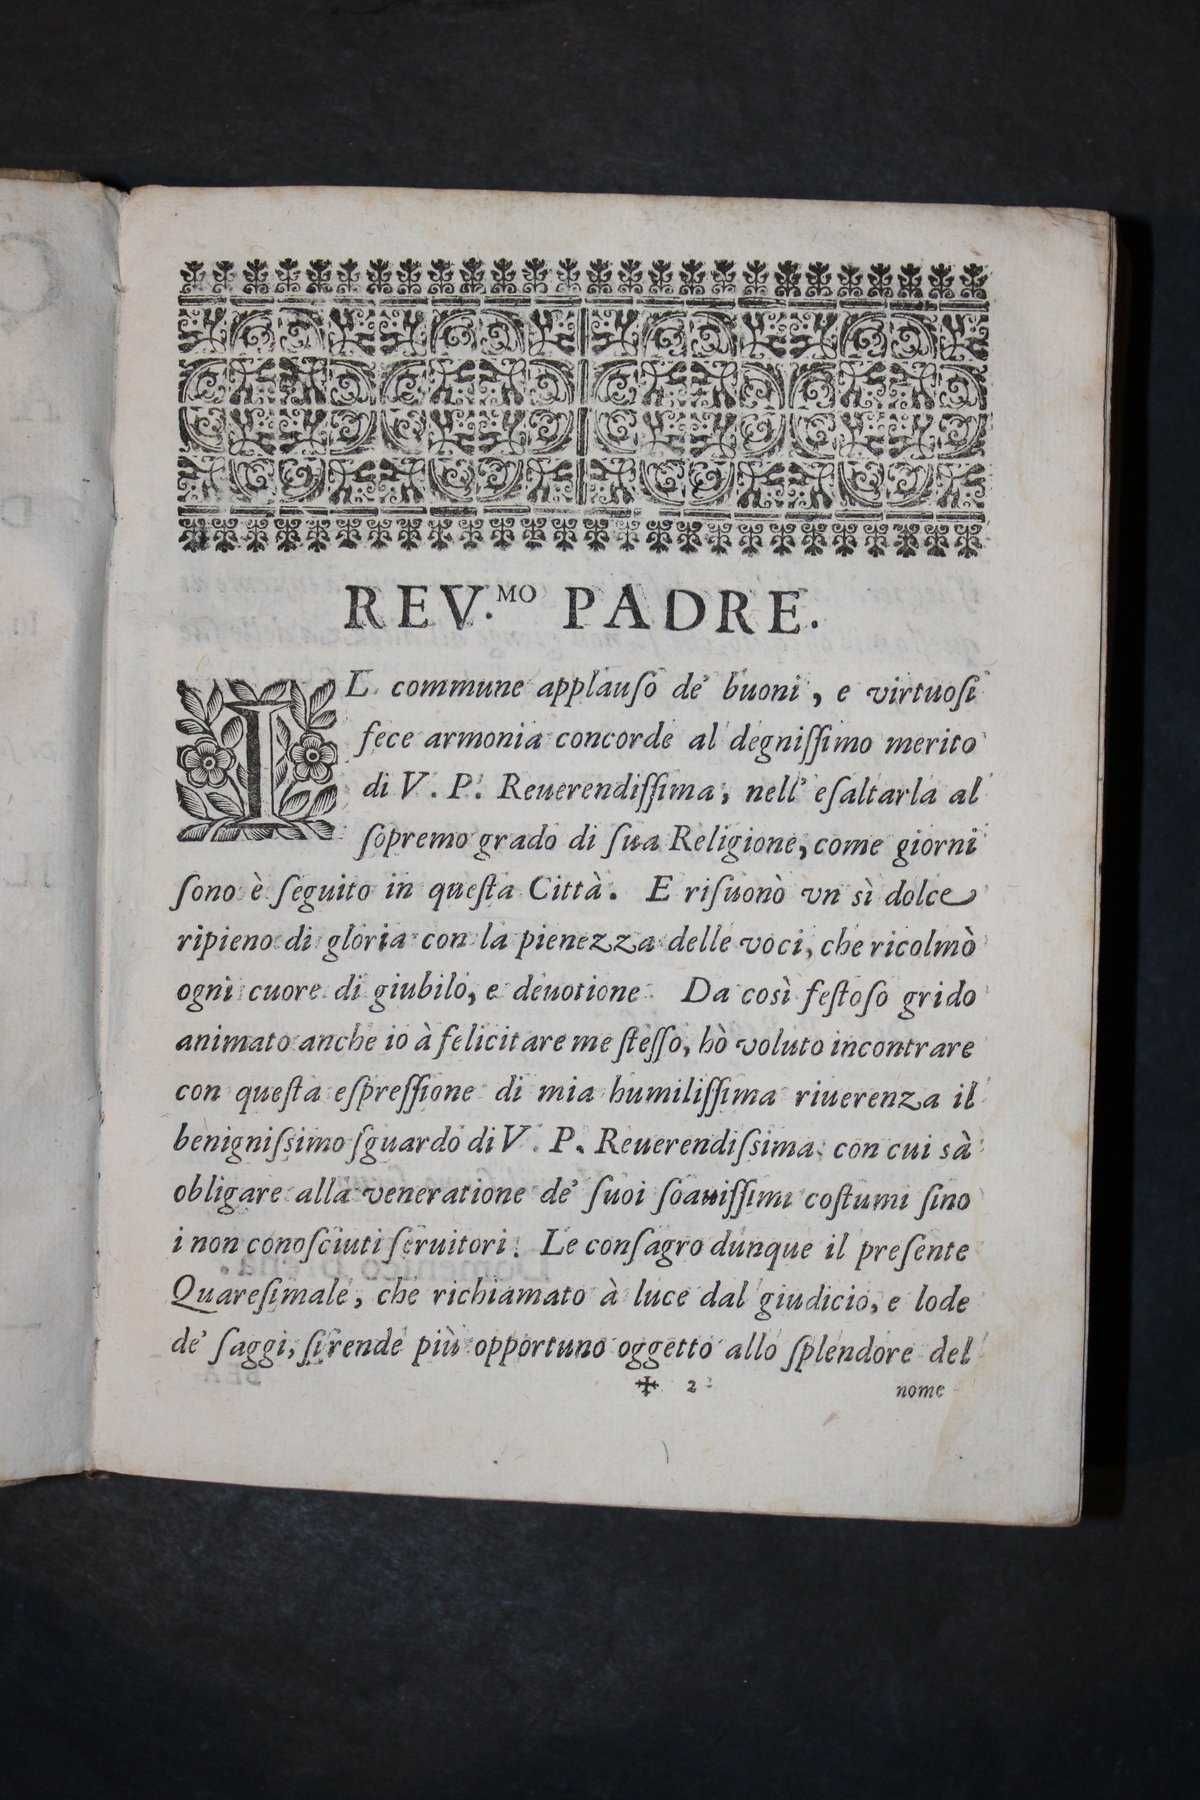 REV.MO PADRE.
IL commune applauſo de' buoni, e virtuoſi
fece armonia concorde al degniſſimo merito
di V. P. Reuerendiſſima, nell' eſaltarla al
ſopremo grado di ſua Religione, come giorni
ſono è ſeguito in queſta Città. E riſuonò vn sì dolce
ripieno di gloria con la pienezza delle voci, che ricolmò
ogni cuore di giubilo, e deuotione. Da così feſtoſo grido
animato anche io à felicitare me ſteſſo, hò voluto incontrare
con queſta eſpreſſione di mia humiliſſima riuerenza il
benigniſsimo ſguardo di V. P. Reuerendiſsima, con cui sà
obligare alla veneratione de' ſuoi ſoauiſſimi coſtumi ſino
i non conoſciuti ſeruitori. Le conſagro dunque il preſente
Quareſimale, che richiamato à luce dal giudicio, e lode
de' ſaggi, ſi rende più opportuno oggetto allo ſplendore del
✠ 2
nome